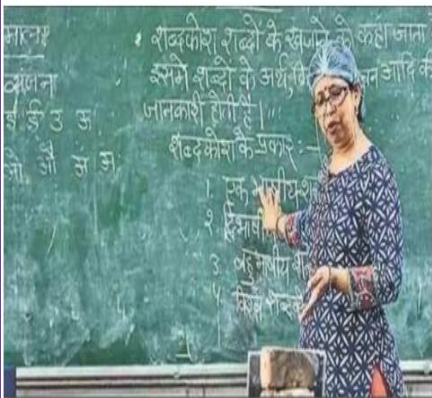 माला
व्यंजन
इ ई उ ऊ
ओ औ अं अः
शब्दकोश शब्दों के खजाने को कहा जाता
इसमे शब्दों के अर्थ, आदि की
जानकारी होती है।
शब्दकोश के प्रकार :-
1. एक भाषीय
2. द्विभाषी
3. बहुभाषीय
4.